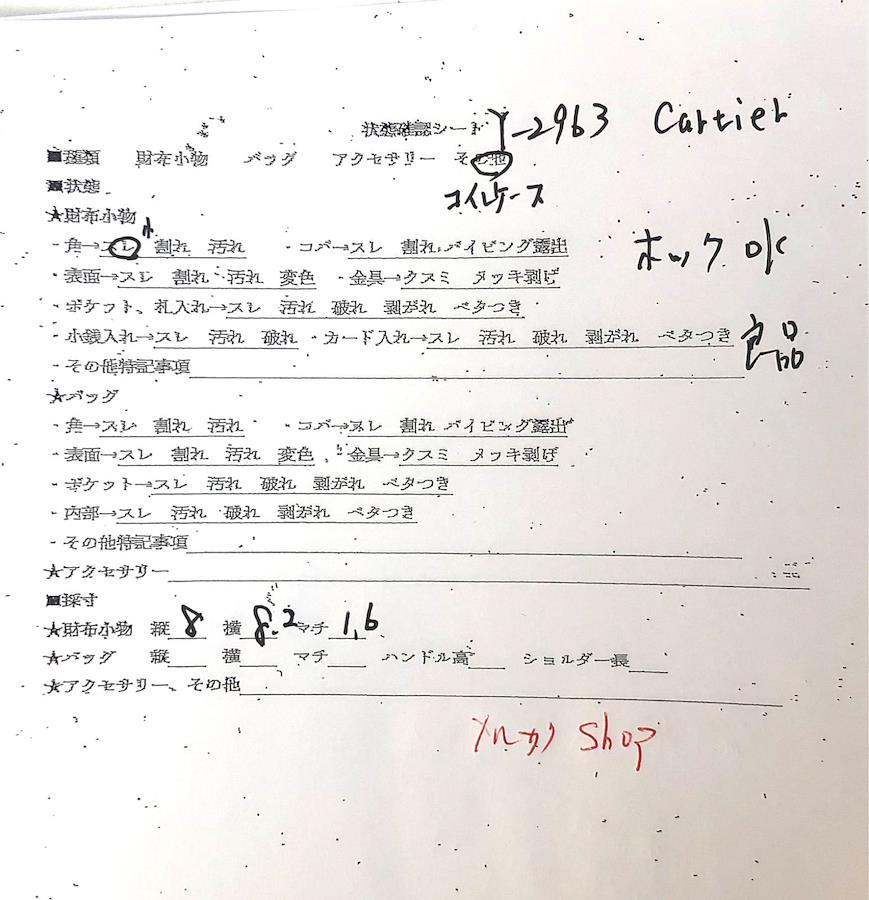 状態確認シート Y-2963 Cartier
■種類 財布小物 バッグ アクセサリー その他
■状態 コインケース
★財布小物 小
・角→スレ 割れ 汚れ ・コバ→スレ 割れ パイピング露出 ホック OK
・表面→スレ 割れ 汚れ 変色 ・金具→クスミ メッキ剥げ
・ポケット、札入れ→スレ 汚れ 破れ 剥がれ ベタつき
・小銭入れ→スレ 汚れ 破れ ・カード入れ→スレ 汚れ 破れ 剥がれ ベタつき 良品
・その他特記事項
★バッグ
・角→スレ 割れ 汚れ ・コバ→スレ 割れ パイピング露出
・表面→スレ 割れ 汚れ 変色 ・金具→クスミ メッキ剥げ
・ポケット→スレ 汚れ 破れ 剥がれ ベタつき
・内部→スレ 汚れ 破れ 剥がれ ベタつき
・その他特記事項
★アクセサリー
■採寸
★財布小物 縦 8 横 8.2 マチ 1.6
★バッグ 縦 横 マチ ハンドル高 ショルダー長
★アクセサリー、その他
メルカリ Shop